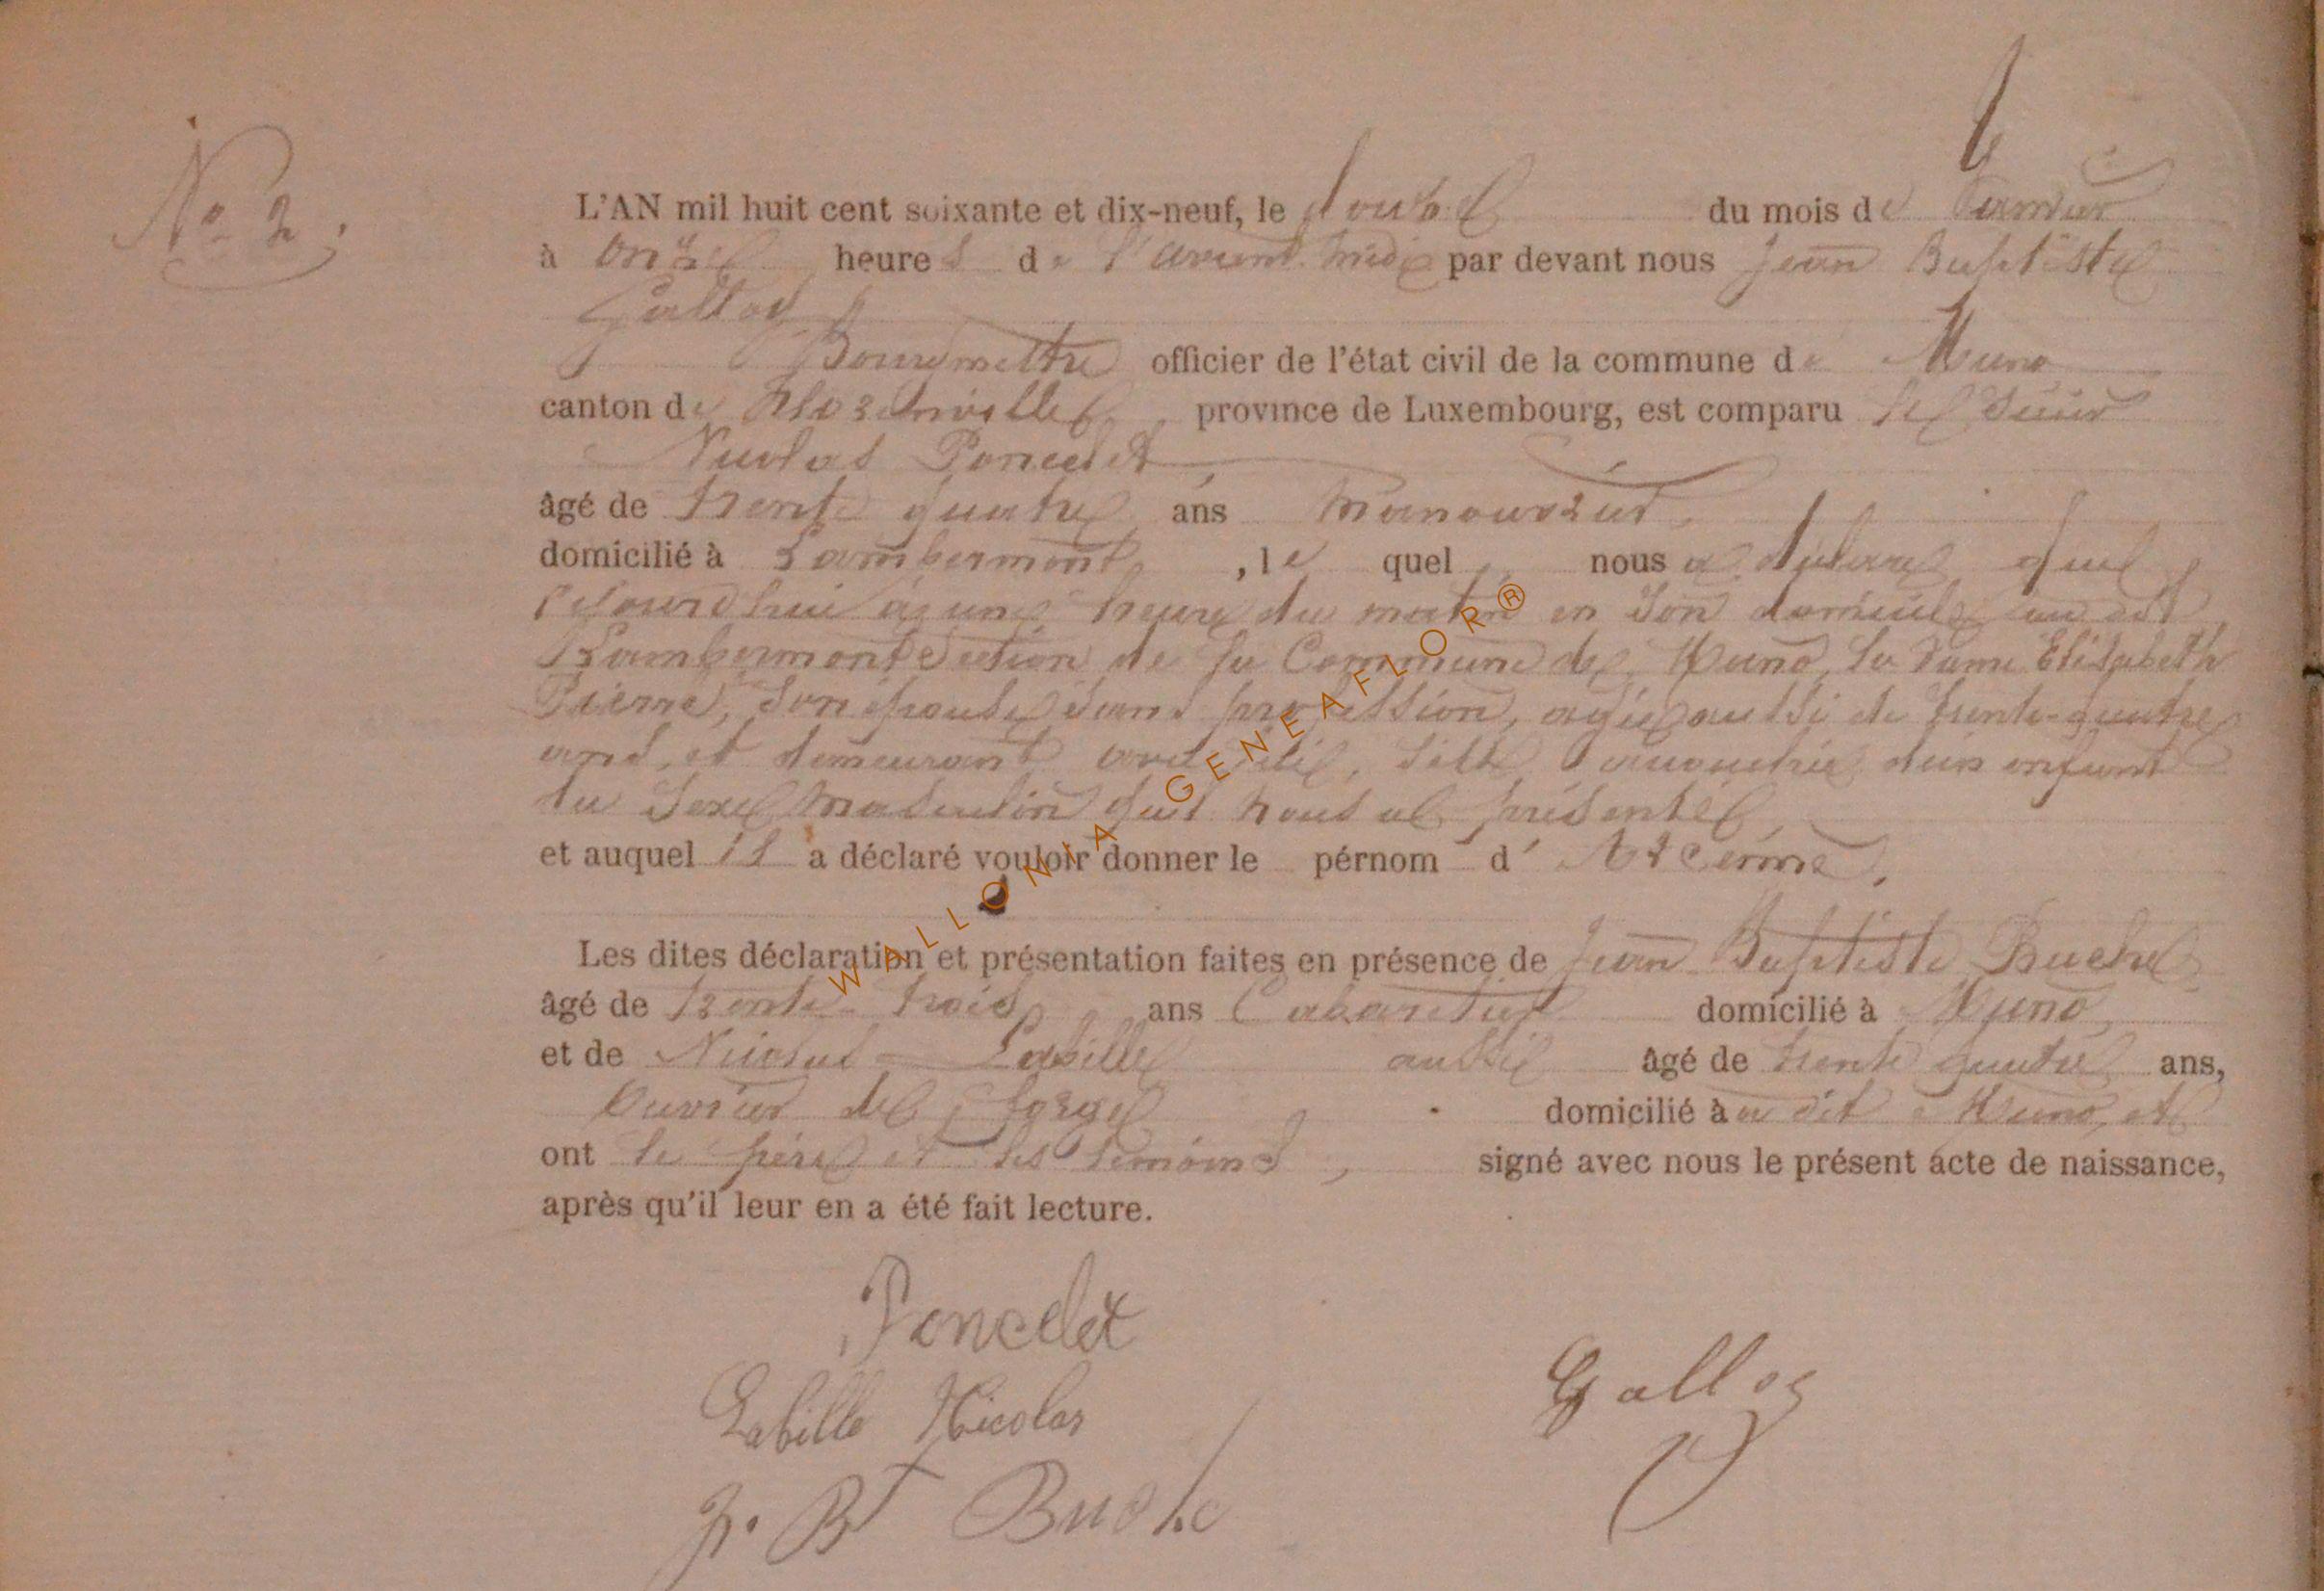 No 2.
L'AN mil huit cent soixante et dix-neuf, le douze du mois de Janvier
à onze heures de l'avant midi par devant nous Jean Baptiste
Gallos
Bourgmestre officier de l'état civil de la commune de Muno
canton de Florenville province de Luxembourg, est comparu le sieur
Nicolas Poncelet
âgé de trente quatre ans manouvrier,
domicilié à Lambermont, le quel nous a déclaré que
cejourd'hui à une heure du matin en son domicile au dit
Lambermont Section de la Commune de Muno, la dame Elisabeth
Pierre, son épouse sans profession, agée aussi de trente-quatre
ans, et demeurant avec lui, est accouchée d'un enfant
du Sexe masculin qu'il nous a présenté
et auquel il a déclaré vouloir donner le pérnom d'
Les dites déclaration et présentation faites en présence de Jean Baptiste Buche
âgé de trente-trois ans Cabaretier domicilié à Muno
et de Nicolas Labille aussi âgé de trente quatre ans,
Ouvrier de forge domicilié à u dit Muno, et
ont le père et les témoins, signé avec nous le présent acte de naissance,
après qu'il leur en a été fait lecture.
Poncelet
Labille Nicolas
Gallos
J. Bt Buche
WALLONIA GENEAFLOR®